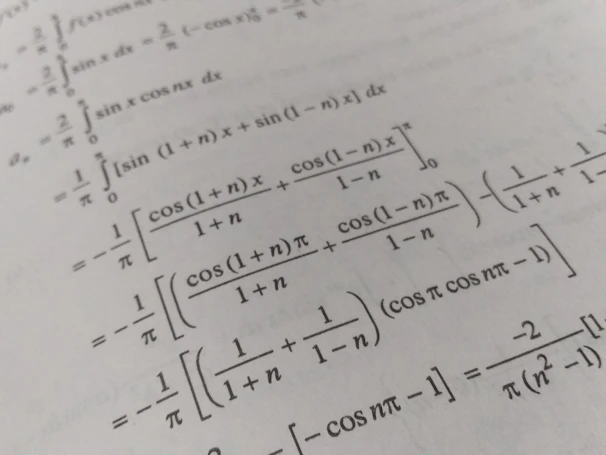 = 2/π ∫₀ f(x) cos nx
= 2/π ∫₀^π sin x dx = 2/π (− cos x)₀^π =
aₙ = 2/π ∫₀^π sin x cos nx dx
= 1/π ∫₀^π [sin (1 + n) x + sin (1 − n) x] dx
= − 1/π [cos (1 + n) x / 1 + n + cos (1 − n) x / 1 − n]₀^π
= − 1/π [(cos (1 + n) π / 1 + n + cos (1 − n) π / 1 − n) − (1 / 1 + n + 1 / 1 −
= − 1/π [(1 / 1 + n + 1 / 1 − n) (cos π cos nπ − 1)]
[− cos nπ − 1] = −2 / π (n² − 1) [1